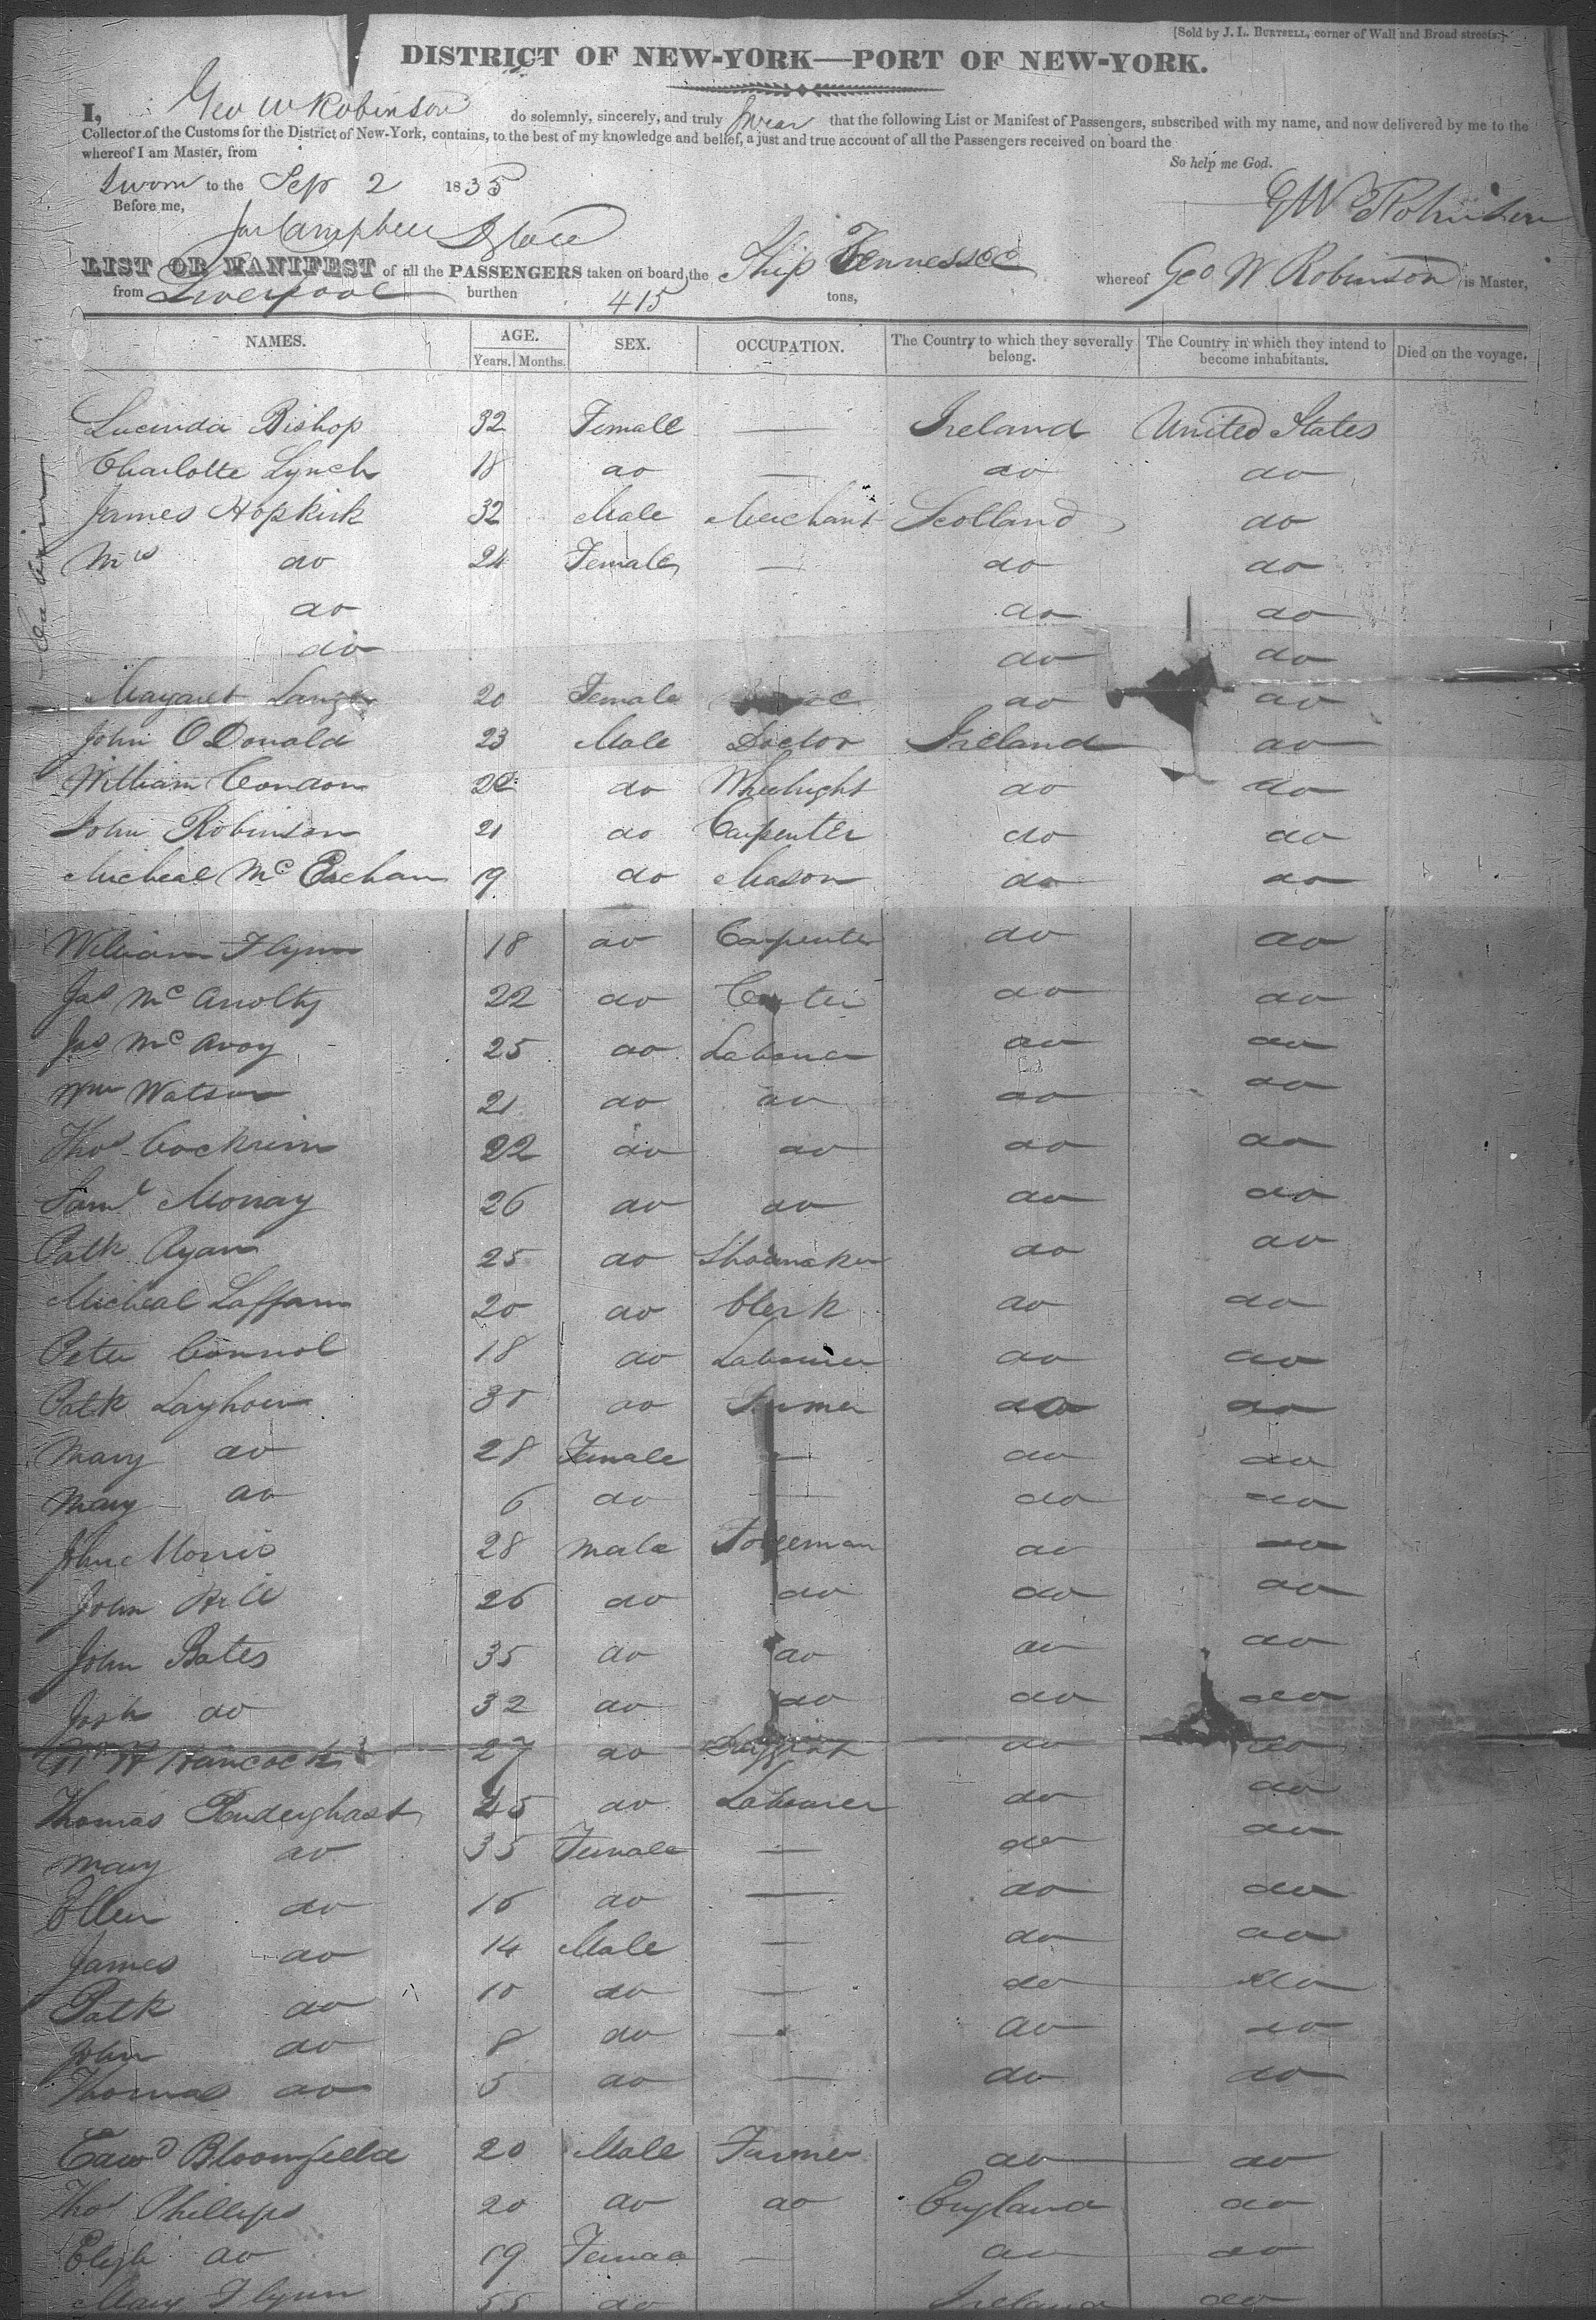 [Sold by J. L. BURTSELL, corner of Wall and Broad streets.]
DISTRICT OF NEW-YORK—PORT OF NEW-YORK.
I, Geo W Robinson do solemnly, sincerely, and truly swear that the following List or Manifest of Passengers, subscribed with my name, and now delivered by me to the
Collector of the Customs for the District of New-York, contains, to the best of my knowledge and belief, a just and true account of all the Passengers received on board the
whereof I am Master, from
So help me God.
Sworn to the Sep 2 1835
Before me,
GW Robinson
Jas Campbell
LIST OR MANIFEST of all the PASSENGERS taken on board the Ship Tennessee whereof Geo W Robinson is Master,
from Liverpool burthen 415 tons,
NAMES. AGE. Years. Months. SEX. OCCUPATION. The Country to which they severally belong. The Country in which they intend to become inhabitants. Died on the voyage.
Cabin
Lucinda Bishop 32 Female — Ireland United States
Charlotte Lynch 18 do — do do
James Hopkirk 32 Male Merchant Scotland do
Mrs do 24 Female — do do
do do do
do do do
Margaret 20 Female do do
John O Donald 23 Male Doctor Ireland do
William Condon do Wheelright do do
John Robinson 21 do Carpenter do do
Micheal Mc 19 do Mason do do
William Flynn 18 do Carpenter do do
Jas Mc 22 do do do
Jas Mc Avoy 25 do Labourer do do
Wm Watson 21 do do do do
Thos Cockrim 22 do do do do
Saml 26 do do do do
Patk Ryan 25 do Shoemaker do do
Micheal Laffam 20 do Clerk do do
Peter Connol 18 do Labourer do do
Patk 30 do Farmer do do
Mary do 28 Female — do do
Mary do 6 do — do do
John Morris 28 Male Forgeman do do
John Hill 26 do do do do
John Bates 35 do do do do
Josh do 32 do do do do
Hancock 27 do Druggist do do
Thomas Penderghast 45 do Labourer do do
Mary do 35 Female — do do
Ellen do 16 do — do do
James do 14 Male — do do
Patk do 10 do — do do
John do 8 do — do do
Thomas do 5 do — do do
Edwd Bloomfield 20 Male Farmer do do
Thos Phillips 20 do do England do
Elizh do 19 Female — do do
Mary Flynn 55 do Ireland do